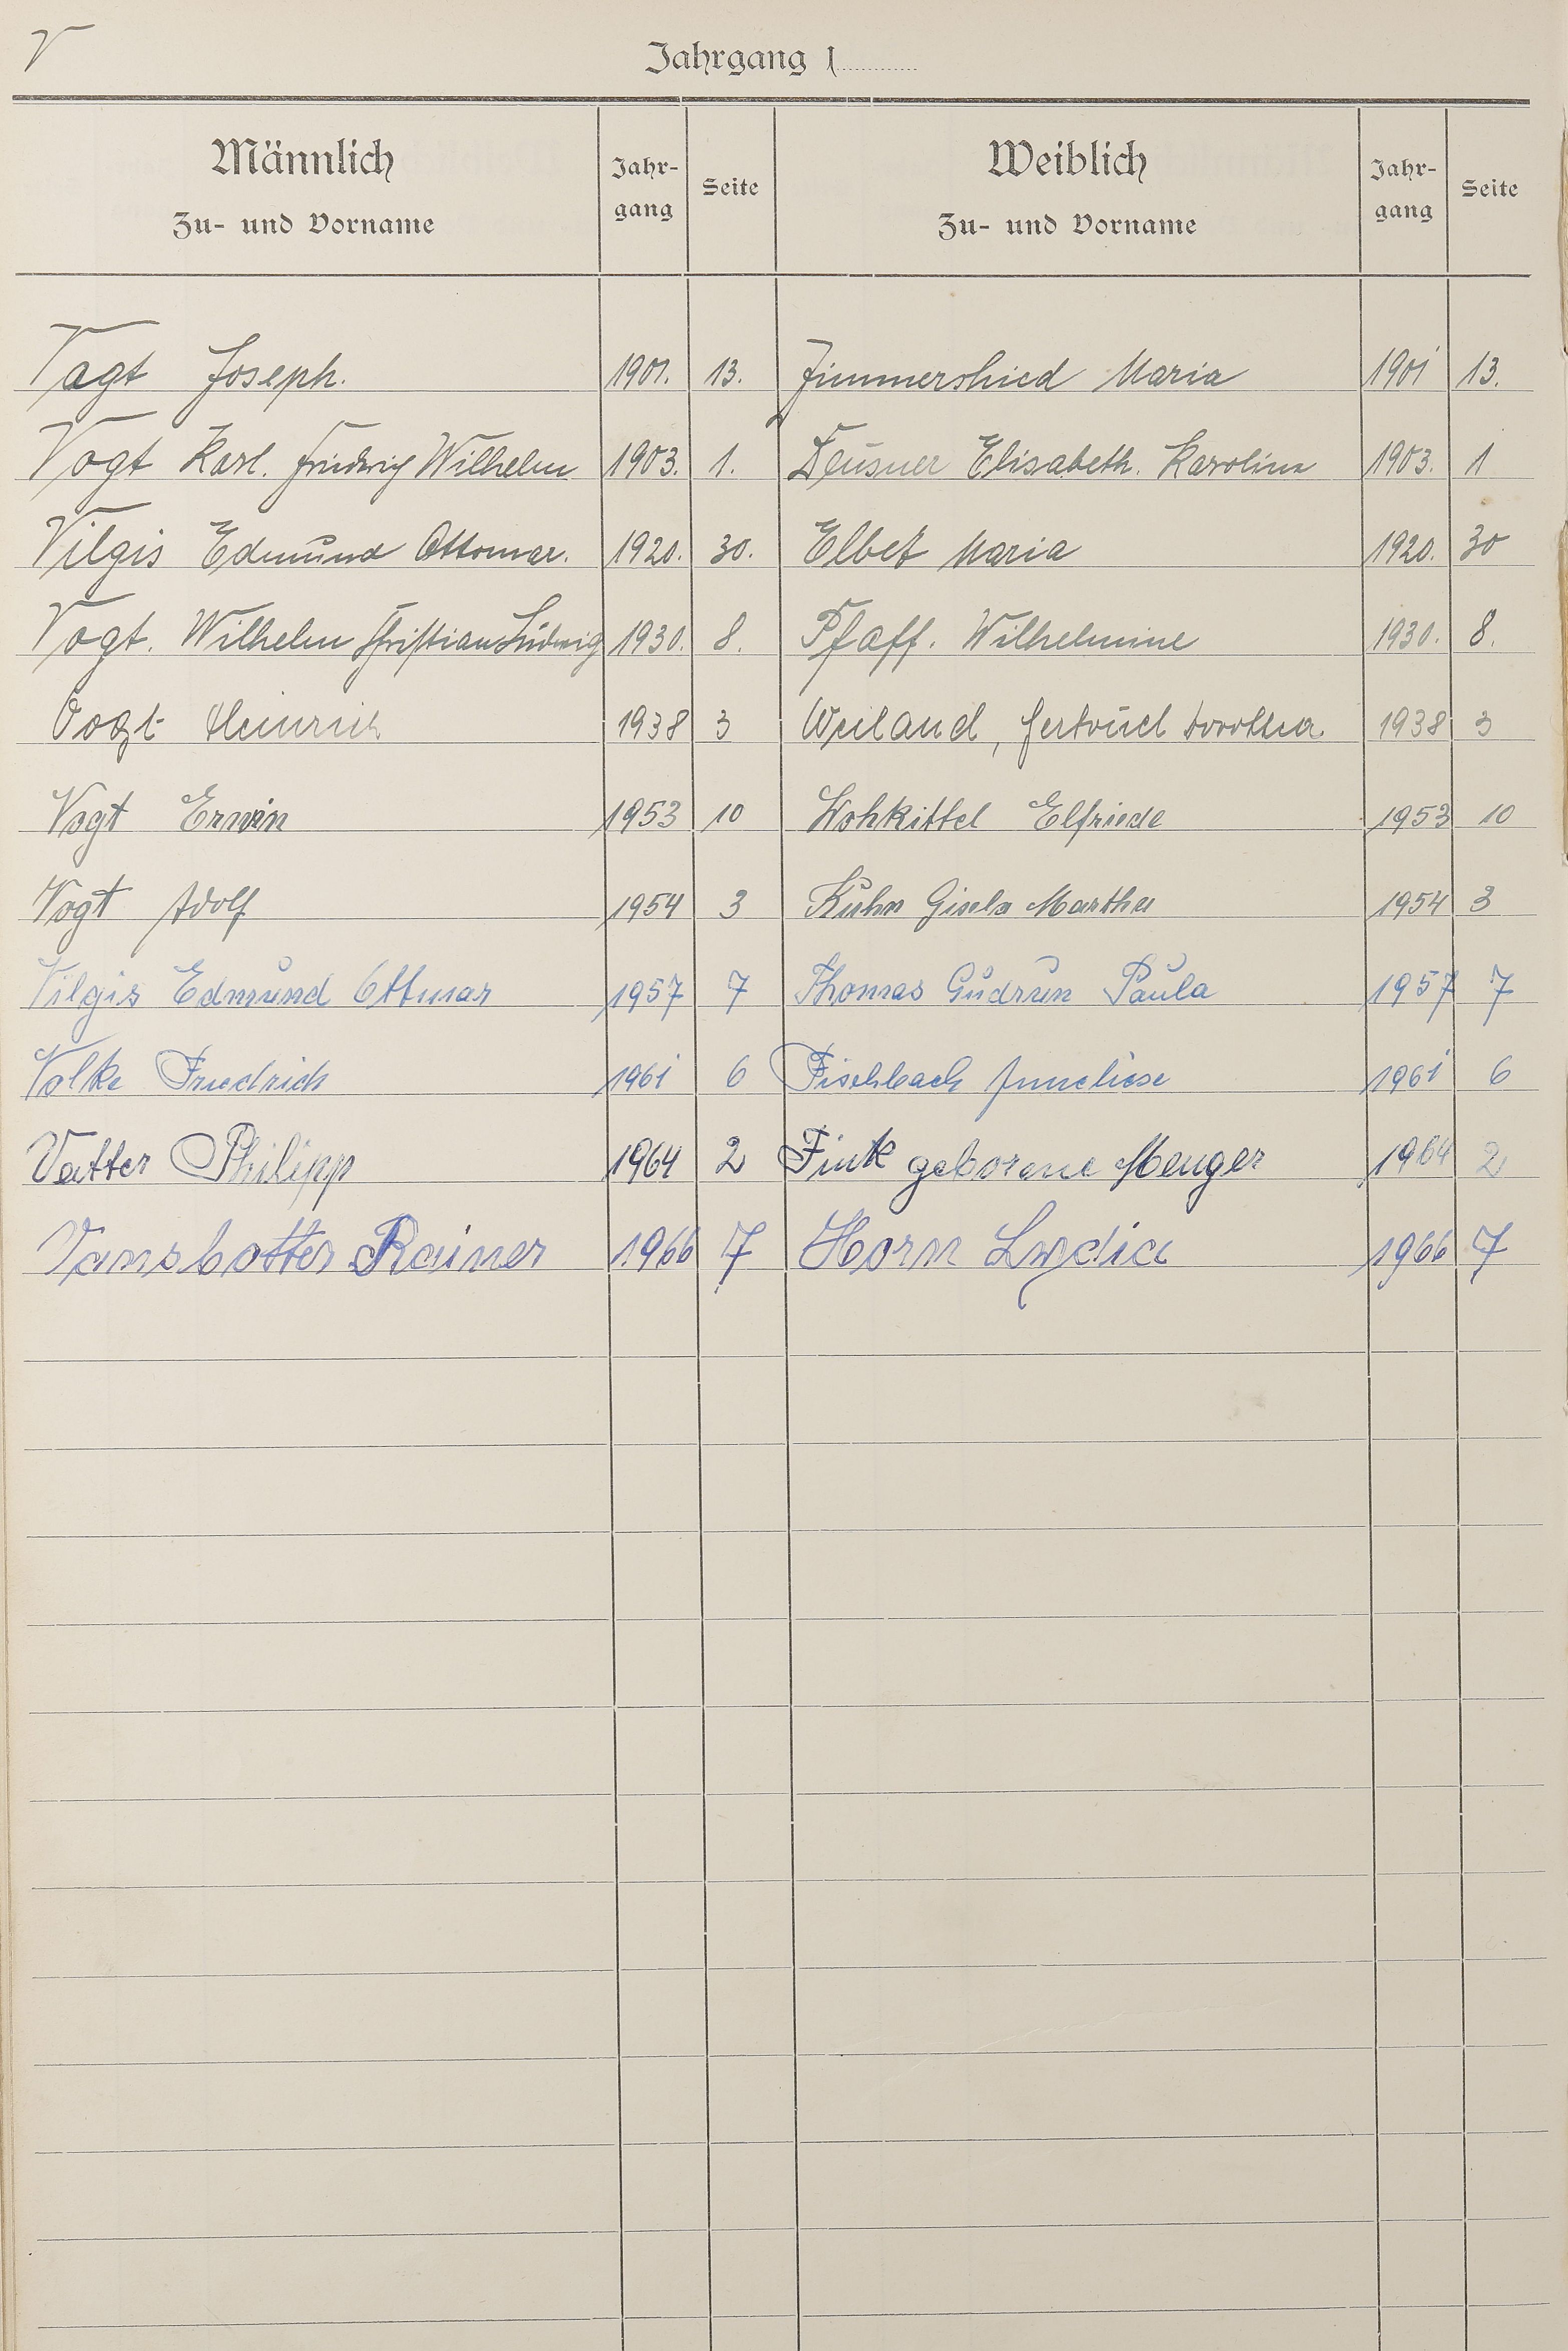 V
Jahrgang 1
Männlich Jahr- Seite Weiblich Jahr- Seite
Zu- und Vorname gang Zu- und Vorname gang
Vagt Joseph. 1901. 13. Zimmershied Maria 1901 13.
Vogt Karl. Friedrich Wilhelm 1903. 1. Deusner Elisabeth. Karoline 1903. 1
Vilgis Edmund Ottomar. 1920. 30. Elbet Maria 1920. 30
Vogt. Wilhelm Christian Ludwig 1930. 8. Pfaff. Wilhelmine 1930. 8.
Vogt Heinrich 1938 3 Weiland, Gertrud Dorothea 1938 3
Vogt Erwin 1953 10 Wohkittel Elfriede 1953 10
Vogt Adolf 1954 3 Kuhn Gisela Martha 1954 3
Vilgis Edmund Ottmar 1957 7 Thomas Gudrun Paula 1957 7
Volke Friedrich 1961 6 Fischbach Anneliese 1961 6
Vatter Philipp 1964 2 Fink geborene Menger 1964 2
Vansbotter Rainer 1966 7 Horn Lydia 1966 7